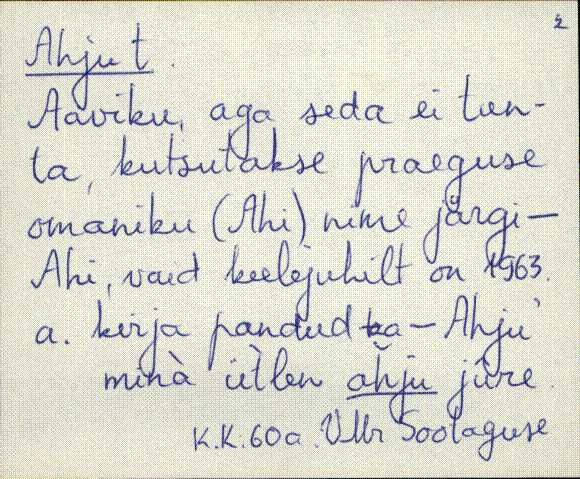 2
Ahju t.
Aaviku, aga seda ei tun-
ta, kutsutakse praeguse
omaniku (Ahi) nime järgi—
Ahi, vaid keelejuhilt on 1963.
a. kirja pandud ka — Ahju'
minà ùtlen ahju jûre.
K.K. 60 a. Vllr Sootaguse